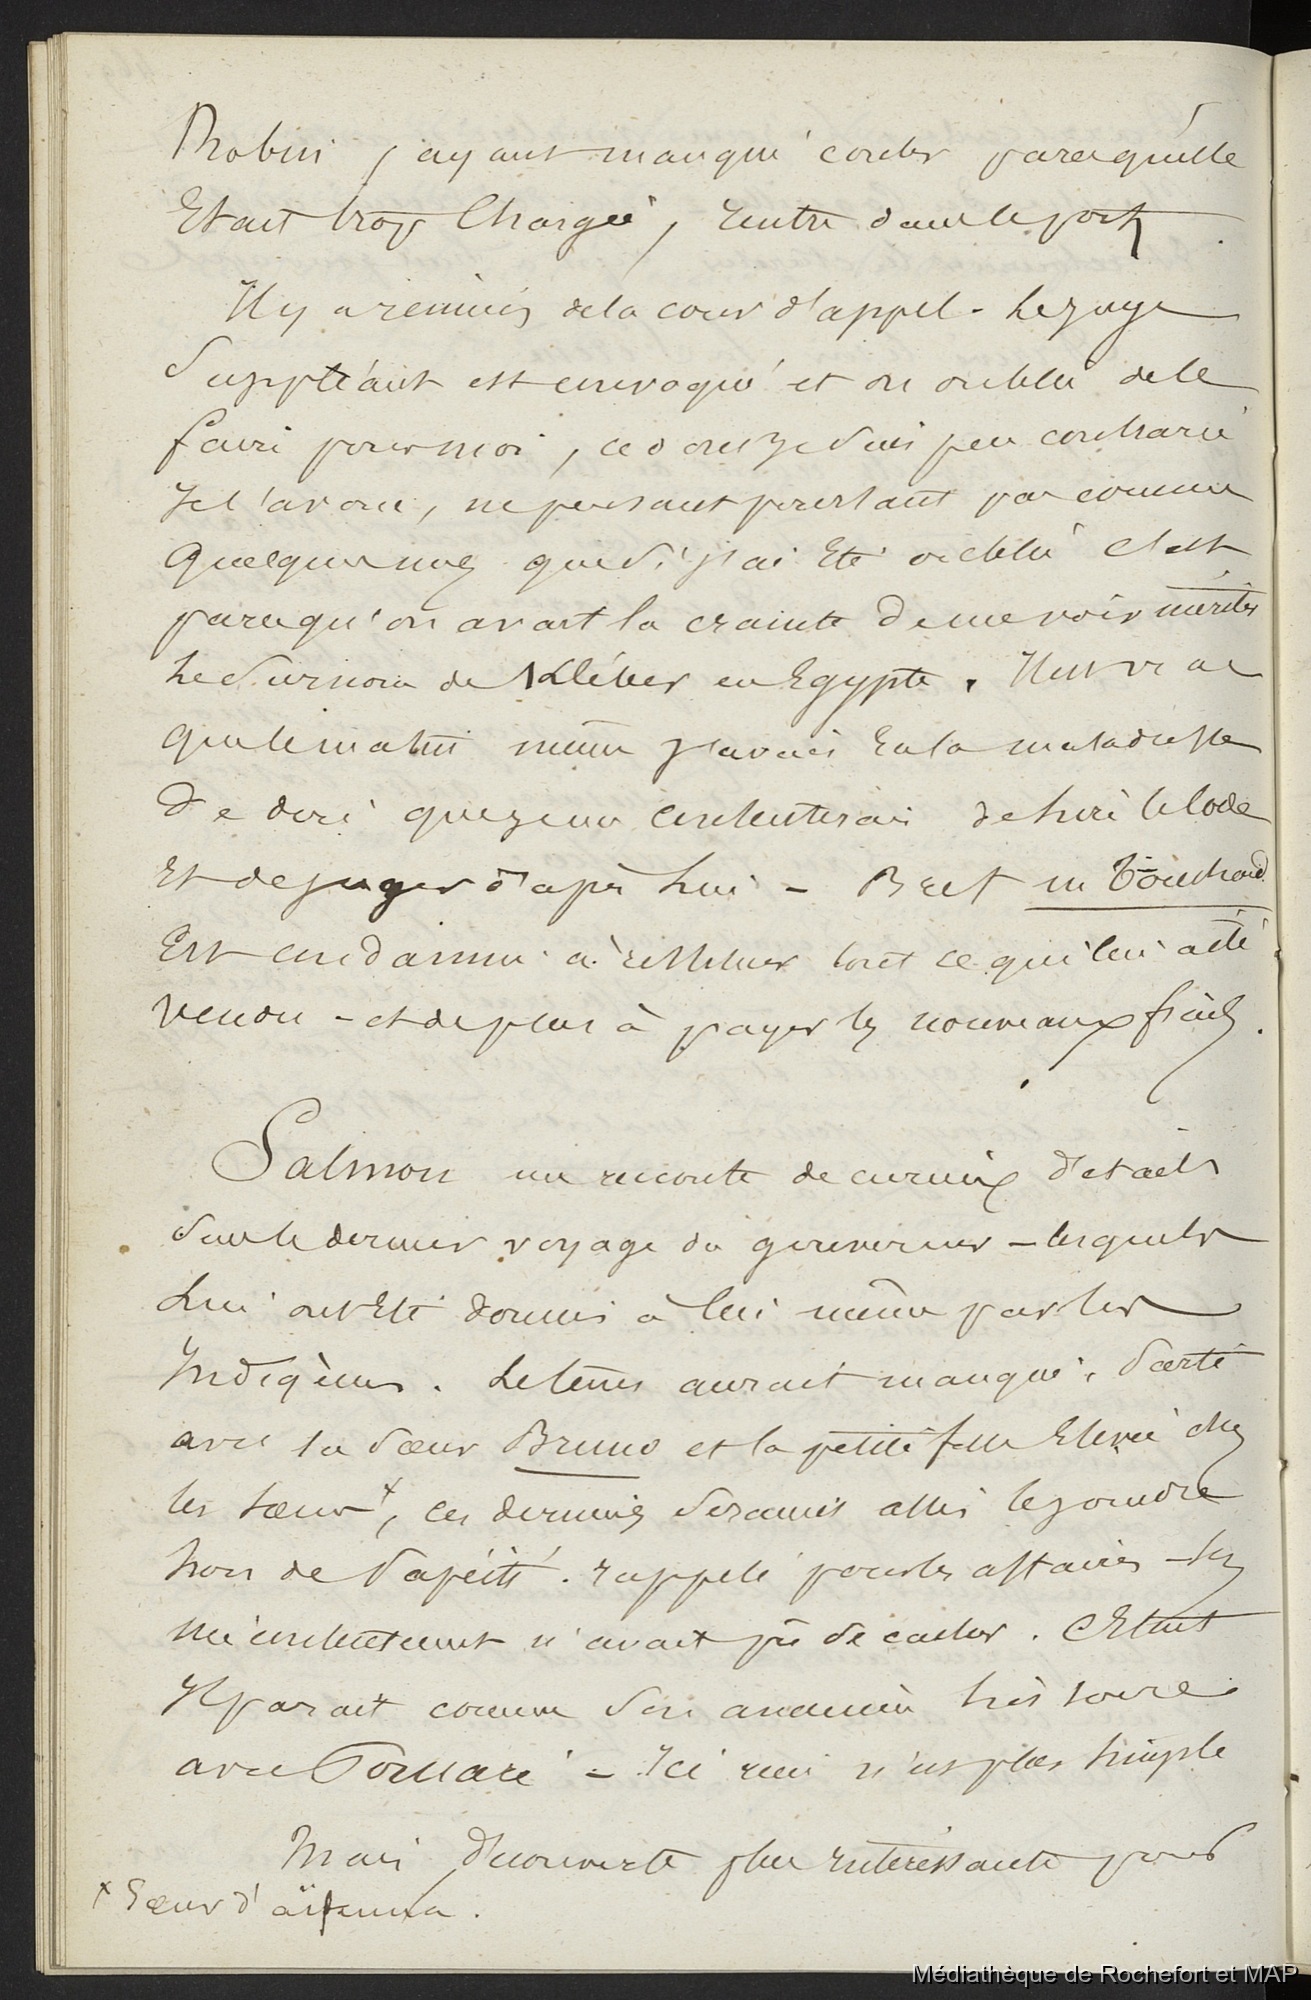 Robin, ayant manqué couler parcequ'elle
Etait trop Chargée, rentre dans le port.
Il y a reunion de la cour d'appel - Le juge
Suppléant est convoqué et on oublie de le
faire pour moi, ce dont je suis peu contrarié
Je l'avoue, ne pensant pourtant pas comme
Quelques uns que si j'ai Eté oublié c'est
parcequ'on avait la crainte de me voir mériter
Le Surnom de Kléber en Egypte. Il est vrai
que le matin même j'avais Eu la maladresse
De dire que je me contenterais de lire le Code
Et de juger d'après lui - Bref m Touchard
Est condamné à restituer tout ce qui lui a été
vendu - et de plus à payer les nouveaux frais.
Salmon me raconte de curieux détails
Sur le dernier voyage du gouverneur - lesquels
Lui ont Eté donnés à lui même par les
Indigènes. Le
aurait manqué
avec la sœur Bruno et la petite fille Elevée chez
les sœurs x, ces dernières seraient allés le joindre
hors de Papéiti. rappelé pour les affaires - Son
mécontentement n'avait pu se cacher. C'Etait
Il parait comme son ancienne histoire
avec Pomaré - Ici rien n'est plus simple
Mais découverte plus interessante pour
x Sœur d'